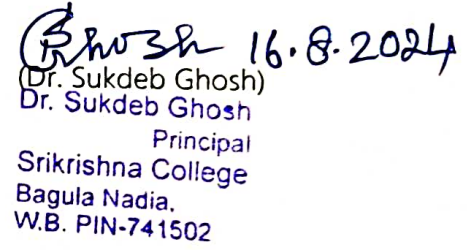 Ghosh 16.8.2024
(Dr. Sukdeb Ghosh)
Dr. Sukdeb Ghosh
Principal
Srikrishna College
Bagula Nadia,
W.B. PIN-741502